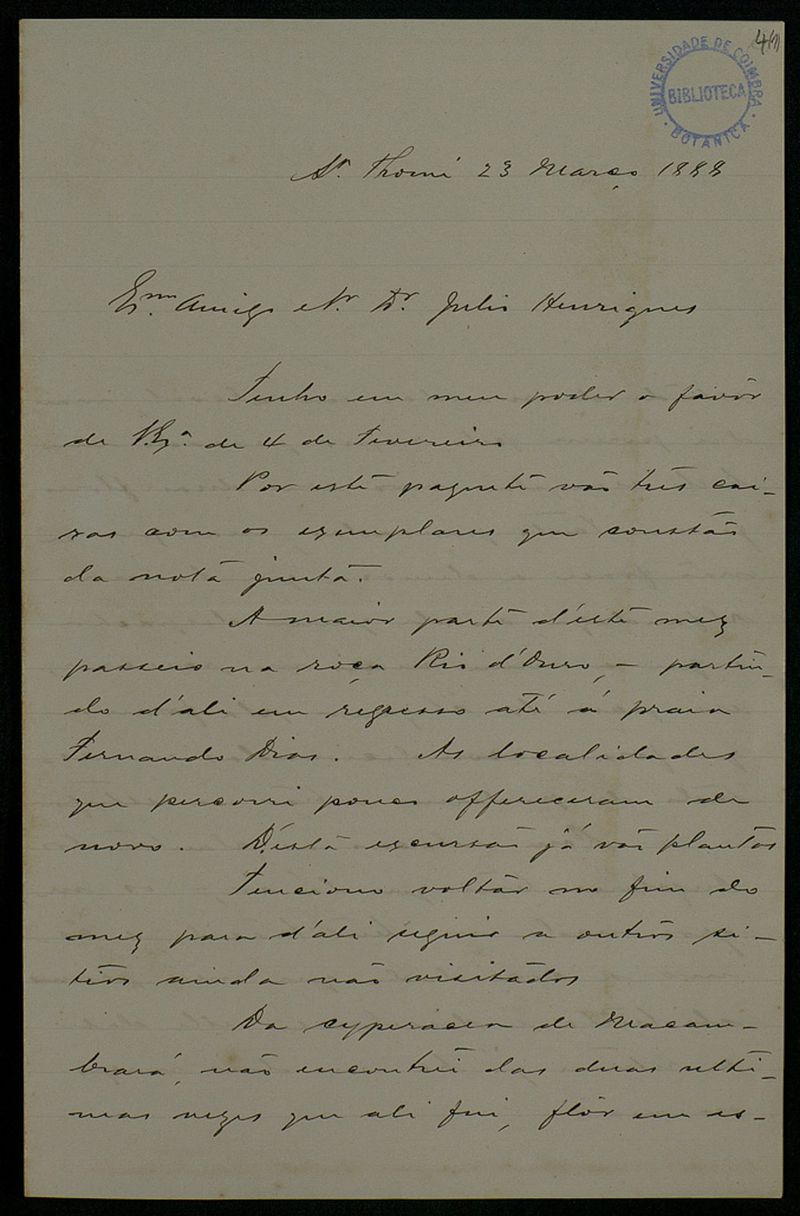 4(1)
UNIVERSIDADE DE COIMBRA
BIBLIOTECA
BOTANICA
S. Thomé 23 Março 1888
Exmo. Amigo e Sr. Dr. Julio Henriques
Tenho em meu poder o favôr
de V. Exa. de 4 de Fevereiro
Por este paquete vão tres cai-
xas com os exemplares que constão
da nota junta.
A maior parte d'este mez
passei-o na roça Rio d'Ouro, - partin-
do d'ali em regresso até á praia
Fernando Dias. As localidades
que percorri pouco offereceram de
novo. D'esta excursão já vão plantas
Tenciono voltar no fim do
mez para d'ali seguir a outros si-
tios ainda não visitados
Da cyperacea de Macam-
brará, não encontrei das duas ulti-
mas vezes que ali fui, flôr em es-